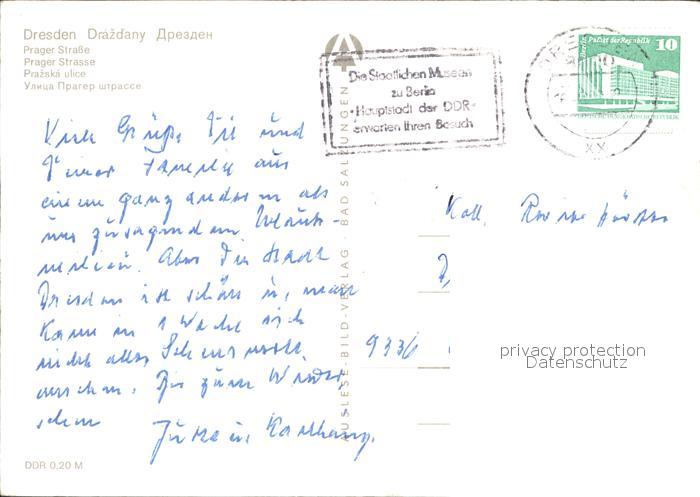 Dresden Drážďany Дрезден
Prager Straße
Prager Strasse
Pražská ulice
Улица Прагер штрассе
Die Staatlichen Museen
zu Berlin
-Hauptstadt der DDR-
erwarten Ihren Besuch
Berlin, Palast der Republik 10
XX
AUSLESE-BILD-VERLAG · BAD SALZUNGEN
Viele Grüße Dir und
Deiner Familie aus
einem ganz anderen als
uns zusagendem Urlaub-
Aber die Stadt
Dresden ist schön u. man
kann in 1 Woche sich
nicht alles Sehenswerte
ansehen. Bis zum Wieder
sehen
Koll.
9336
privacy protection
Datenschutz
DDR 0,20 M